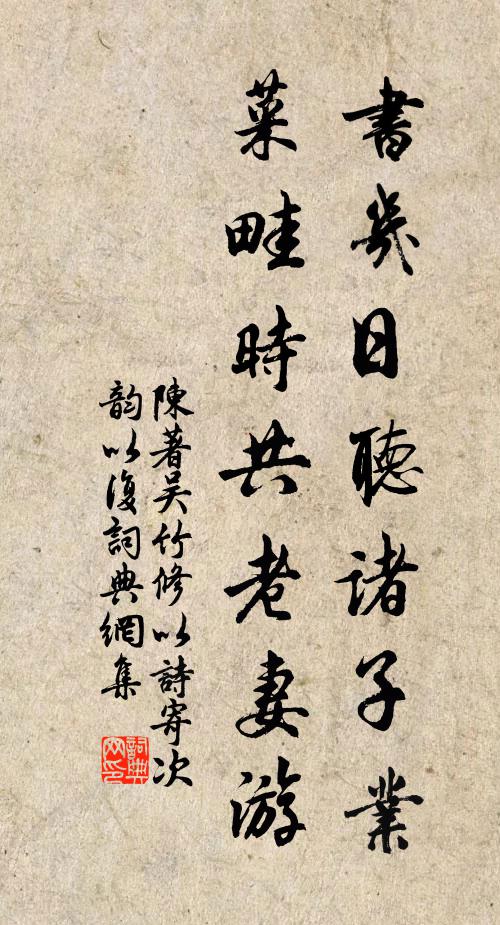 書几日聽諸子業
菜畦時共老妻游
陳著吴竹修以詩寄次
韵以復詞典網集
詞典网印